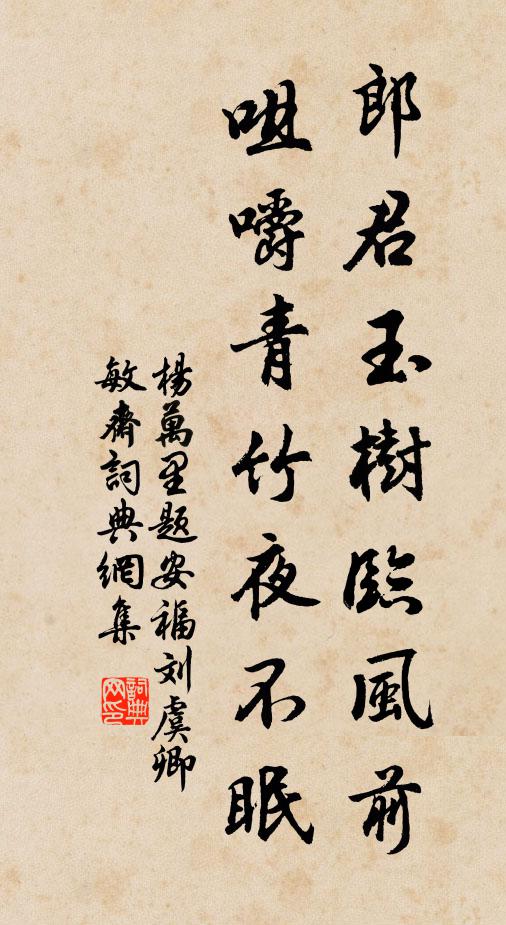 郎君玉樹臨風前
咀嚼青竹夜不眠
楊萬里題安福刘虞卿
敏齋詞典網集
詞典网印